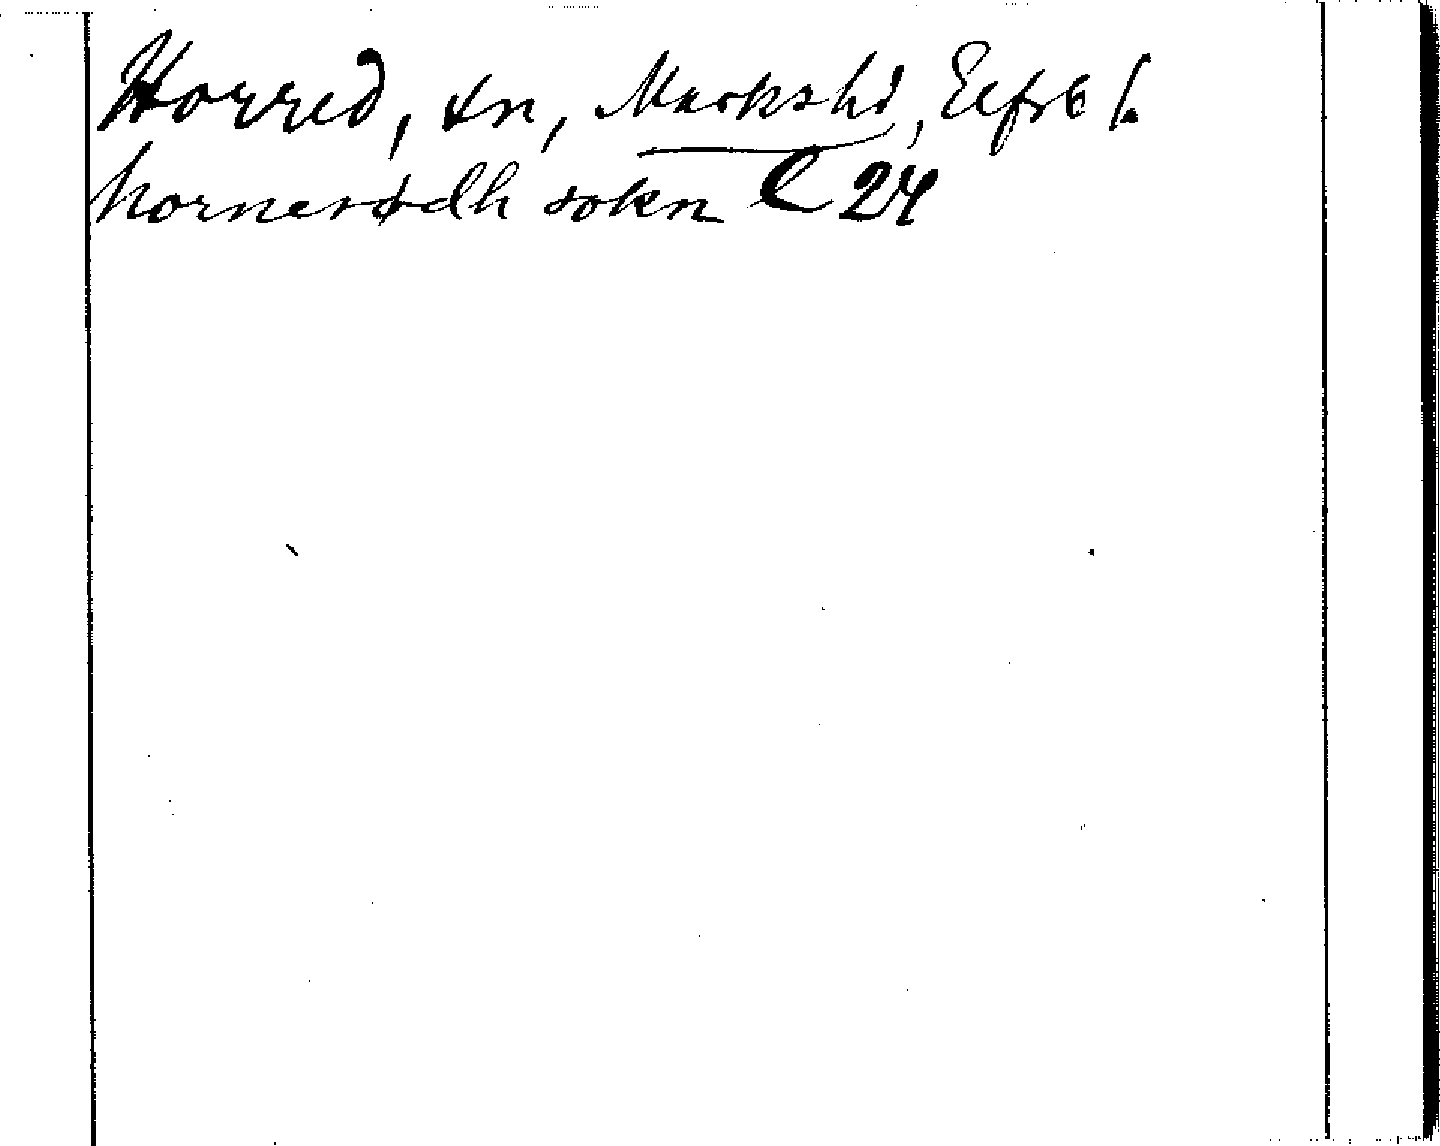 Horred, sn, Markshd, Elfsb l.
hornerødh sokn C 24